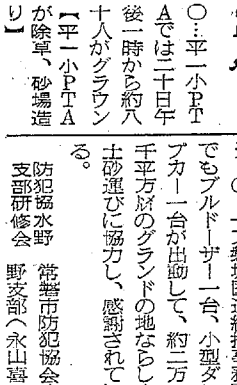 ○…平一小PT
Aでは二十日午
後一時から約八
十人がグラウン
【平一小PTA
が除草、砂場造
り】
でもブルドーザー一台、小型ダ
プカー一台が出動して、約二万
千平方㍍のグランドの地ならし
土砂運びに協力し、感謝されて
る。
防犯協水野
支部研修会
常磐市防犯協会
野支部(永山喜